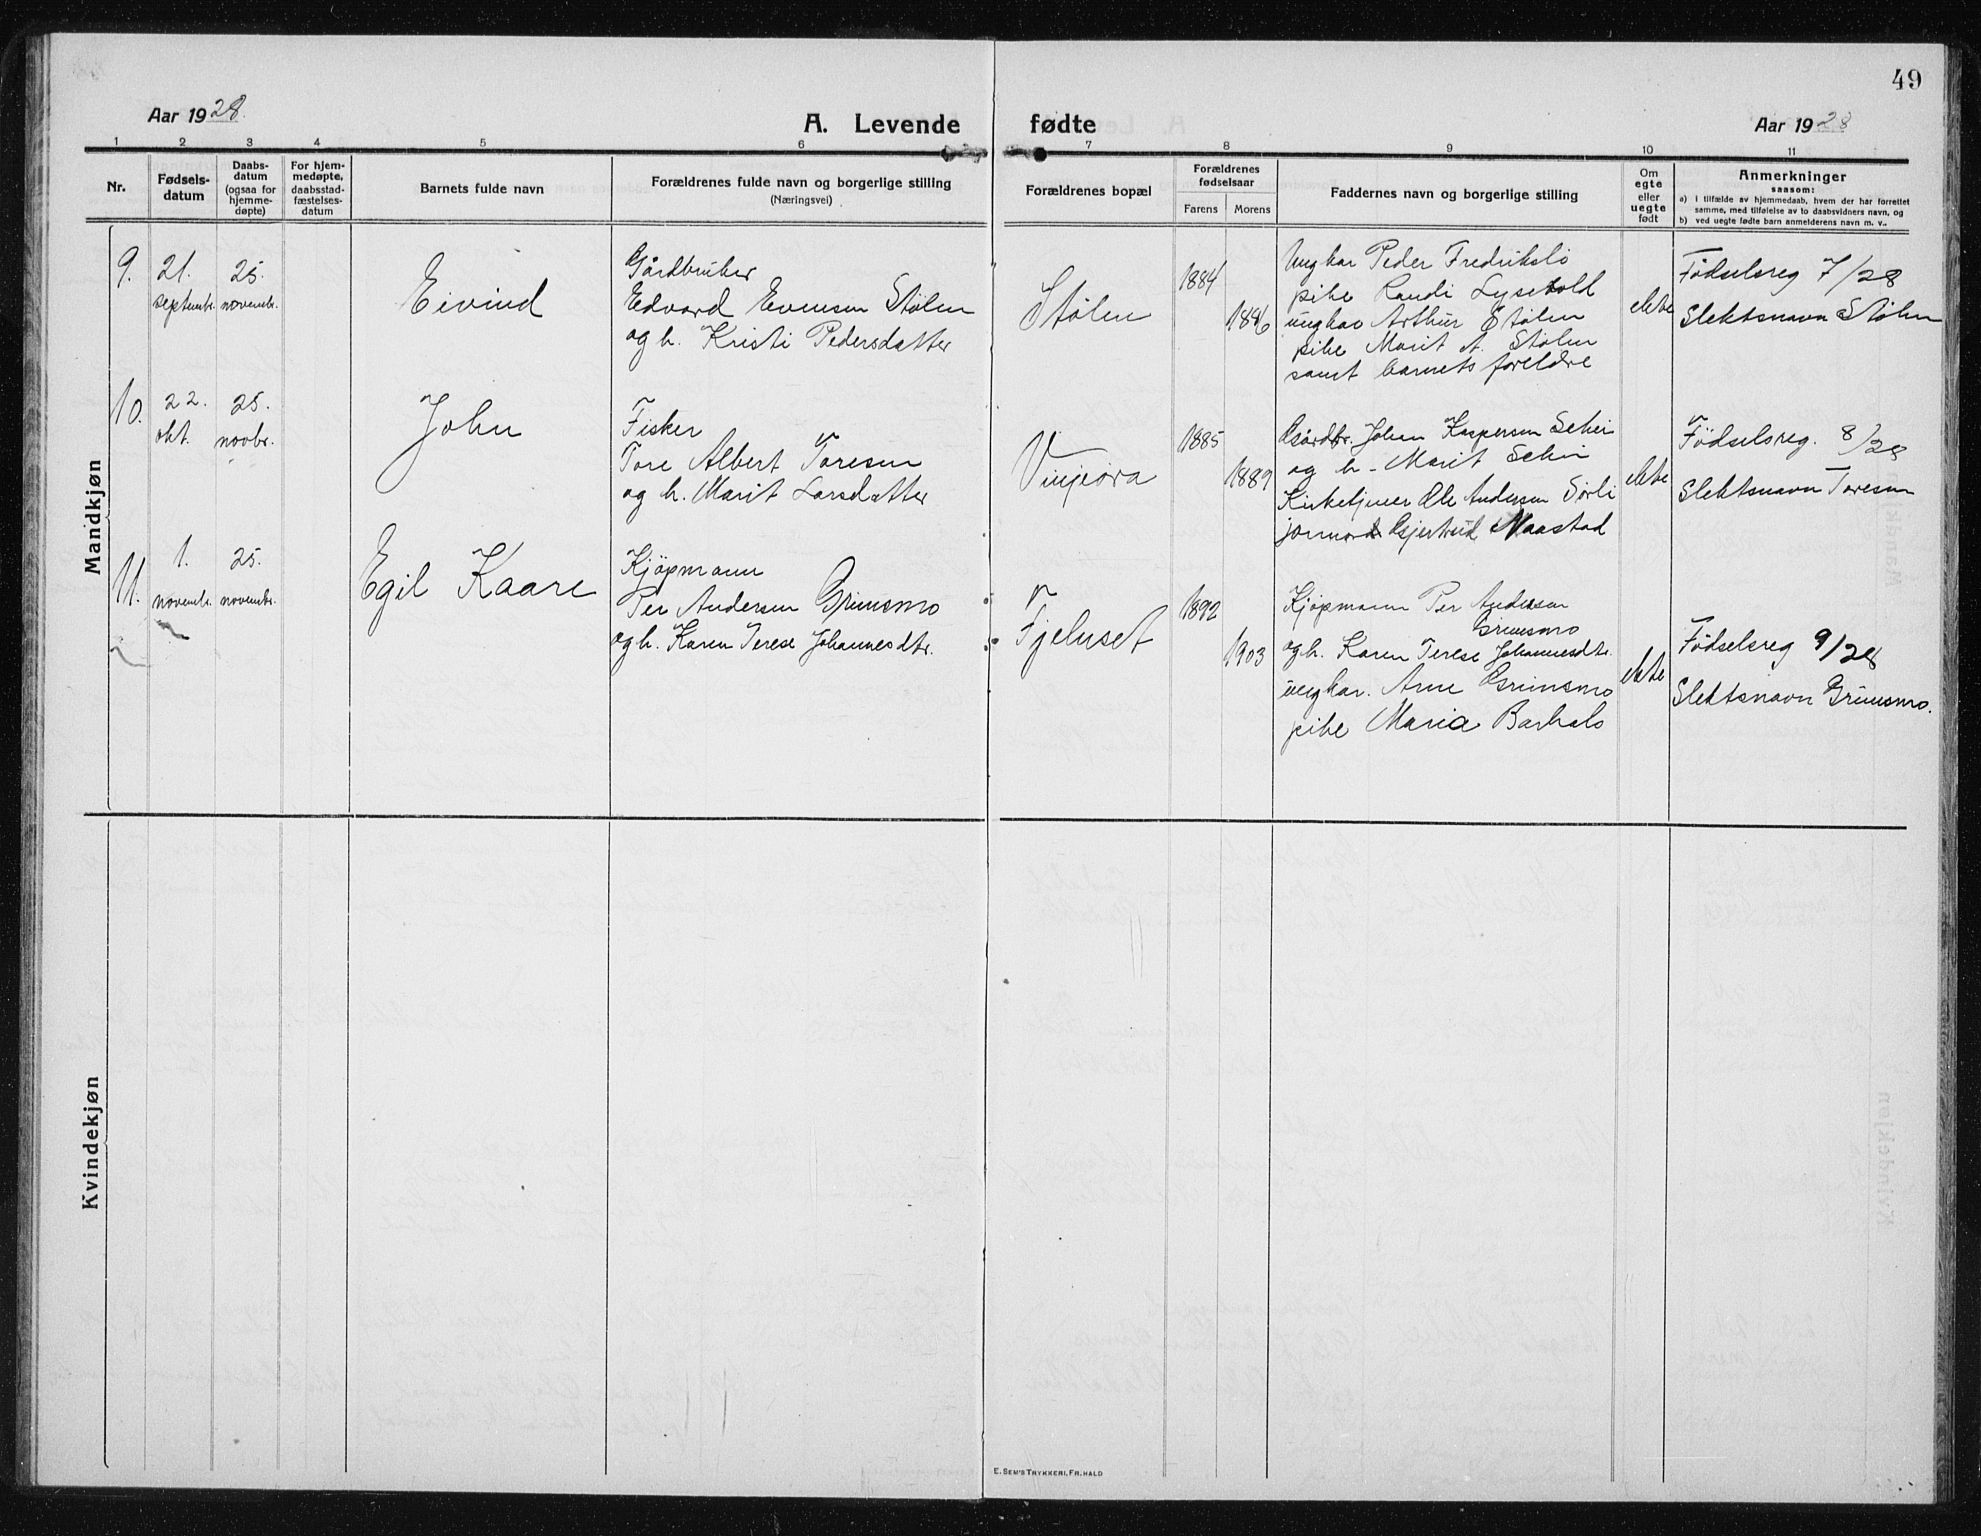 49
Aar 1928.
A. Levende fødte
Aar 1928
1 2 3 4 5 6 7 8 9 10 11
Nr.
Fødsels-
datum
Daabs-
datum
(ogsaa for
hjemme-
døpte)
For hjem-
medøpte,
daabsstad-
fæstelses-
datum
Barnets fulde navn
Forældrenes fulde navn og borgerlige stilling
(Næringsvei)
Forældrenes bopæl
Forældrenes
fødselsaar
Farens Morens
Faddernes navn og borgerlige stilling
Om
egte
eller
uegte
født
Anmerkninger
saasom:
a) i tilfælde av hjemmedaab, hvem der har forrettet
samme, med tilføielse av to daabsvidners navn, og
b) ved uegte fødte barn anmelderens navn m. v..
Mandkjøn
9.
21.
septembr.
25.
novembr.
Eivind
Gårdbruker
Edvard Evensen Stølen
og h. Kristi Pedersdatter
Stølen
1884
1886
Ungkar Peder Fredrikslo
pike Randi Lysebold
ungkar Arthur Stølen
pike Marit A. Stølen
samt barnets foreldre
ekte
Fødselsreg 7/28
Slektsnavn Stølen
10.
22.
okt.
25.
novbr.
John
Fisker
Tore Albert Toresen
og h. Marit Larsdatter
Vinjeøra
1885
1889
Gårdbr. Johan Kaspersen
og h. Marit
Kirketjener Ole Andersen Sørli
jormor Gjertrud Naastad
ekte
Fødselsreg. 8/28
Slektsnavn Toresen
11.
1.
novembr.
25.
novembr.
Egil Kaare
Kjøpmann
Per Andersen Grimsmo
og h. Karen Terese Johannesdtr.
Fjelnset
1892
1903
Kjøpmann Per Andersen
Grimsmo
og h. Karen Terese Johannesdtr.
ungkar. Arne Grimsmo
pike Maria Barhals
ekte
Fødselsreg 9/28
Slektsnavn Grimsmo.
Kvindekjøn
E. SEM'S TRYKKERI, FR.HALD